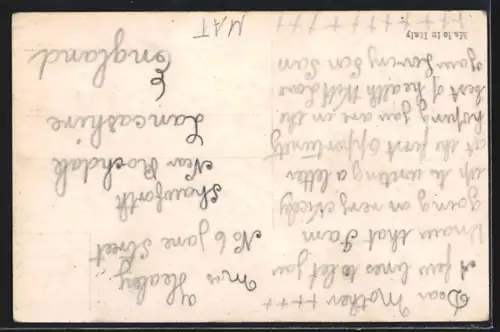 Dear Mother ++++
A few lines to let you
know that I am
going on very nicely
up to writing a letter
at the first opportunity
hoping you are in the
best of health With Love
your loving Son Sam
+ + + + + + + +
Made in Italy
Mrs Healey
No 6 Jane Street
Shawforth
Near Rochdale
Lancashire
E
England